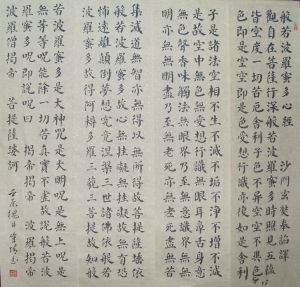 般若波羅蜜多心經 沙門玄奘奉詔譯
觀自在菩薩行深般若波羅蜜多時照見五蘊
皆空度一切苦厄舍利子色不異空空不異色
色即是空空即是色受想行識亦復如是舍利
子是諸法空相不生不滅不垢不淨不增不減
是故空中無色無受想行識無眼耳鼻舌身意
無色聲香味觸法無眼界乃至無意識界無無
明亦無無明盡乃至無老死亦無老死盡無苦
集滅道無智亦無得以無所得故菩提薩埵依
般若波羅蜜多故心無罣礙無罣礙故無有恐
怖遠離顛倒夢想究竟涅槃三世諸佛依般若
波羅蜜多故得阿耨多羅三藐三菩提故知般
若波羅蜜多是大神咒是大明咒是無上咒是
無等等咒能除一切苦真實不虛故說般若波
羅蜜多咒即說咒曰 揭帝揭帝 波羅揭帝
波羅僧揭帝 菩提薩婆訶